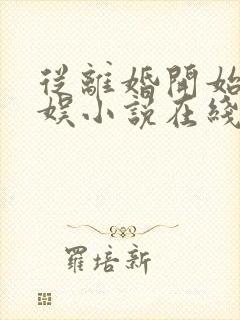 從離婚開始
娛小說在綫
羅培新